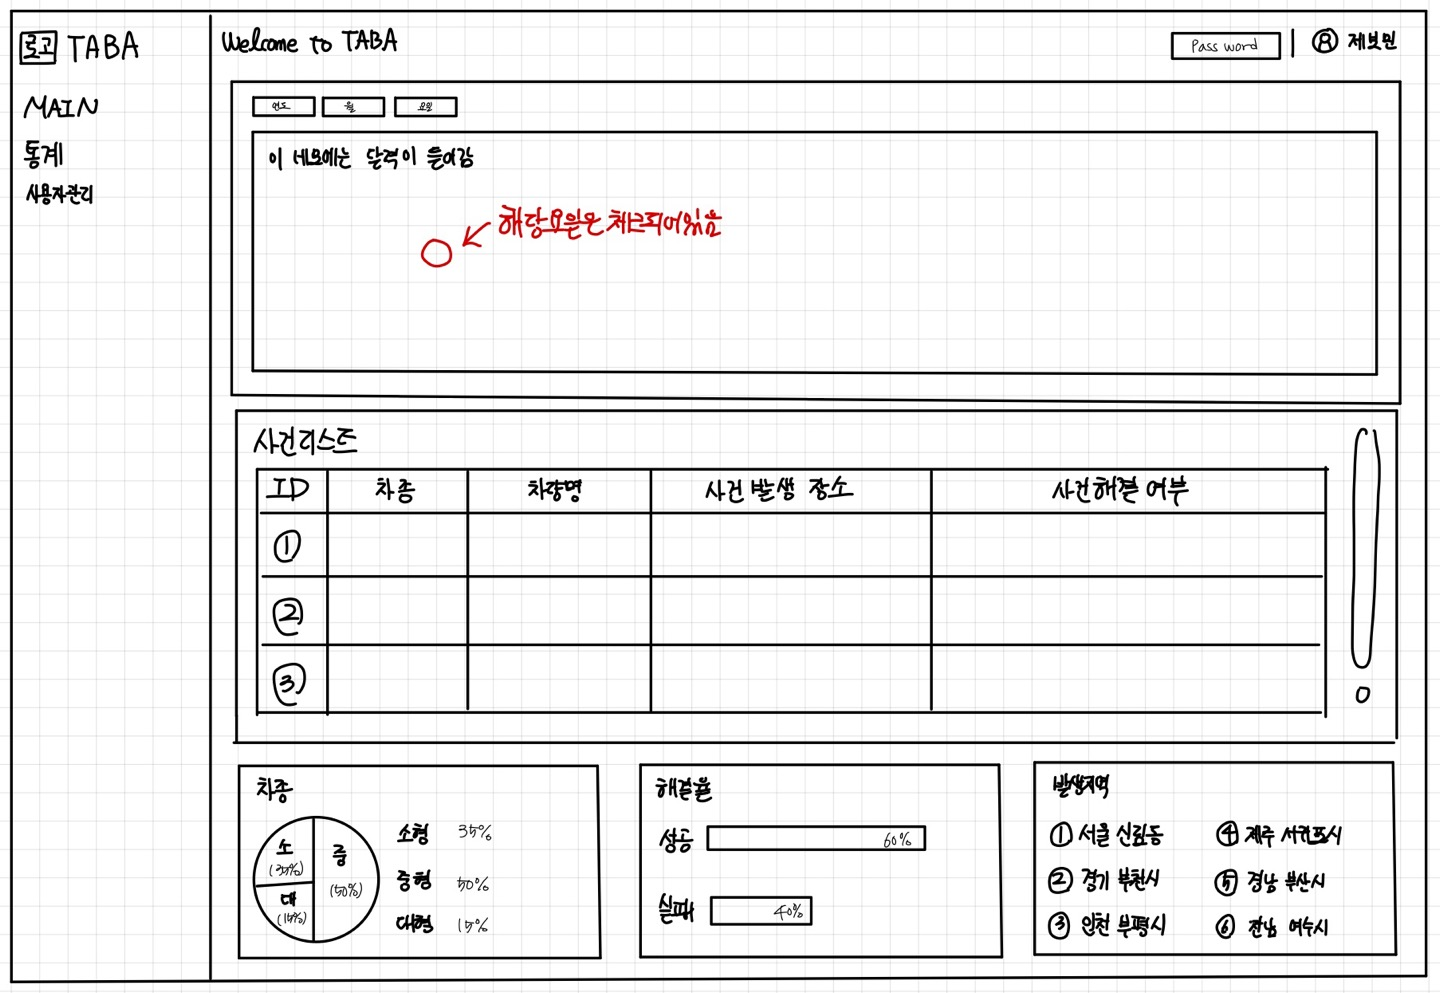 로고 TABA
MAIN
통계
사용자관리
Welcome to TABA
Pass word
제보민
연도 월 요일
이 네모에는 달력이 들어감
해당요일은 체크되어있음
사건리스트
ID 차종 차량명 사건 발생 장소 사건해결 여부
①
②
③
차종
소 (35%)
중 (50%)
대 (15%)
소형 35%
중형 50%
대형 15%
해결율
성공 60%
실패 40%
발생지역
① 서울 신림동
② 경기 부천시
③ 인천 부평시
④ 제주 서귀포시
⑤ 경남 부산시
⑥ 전남 여수시